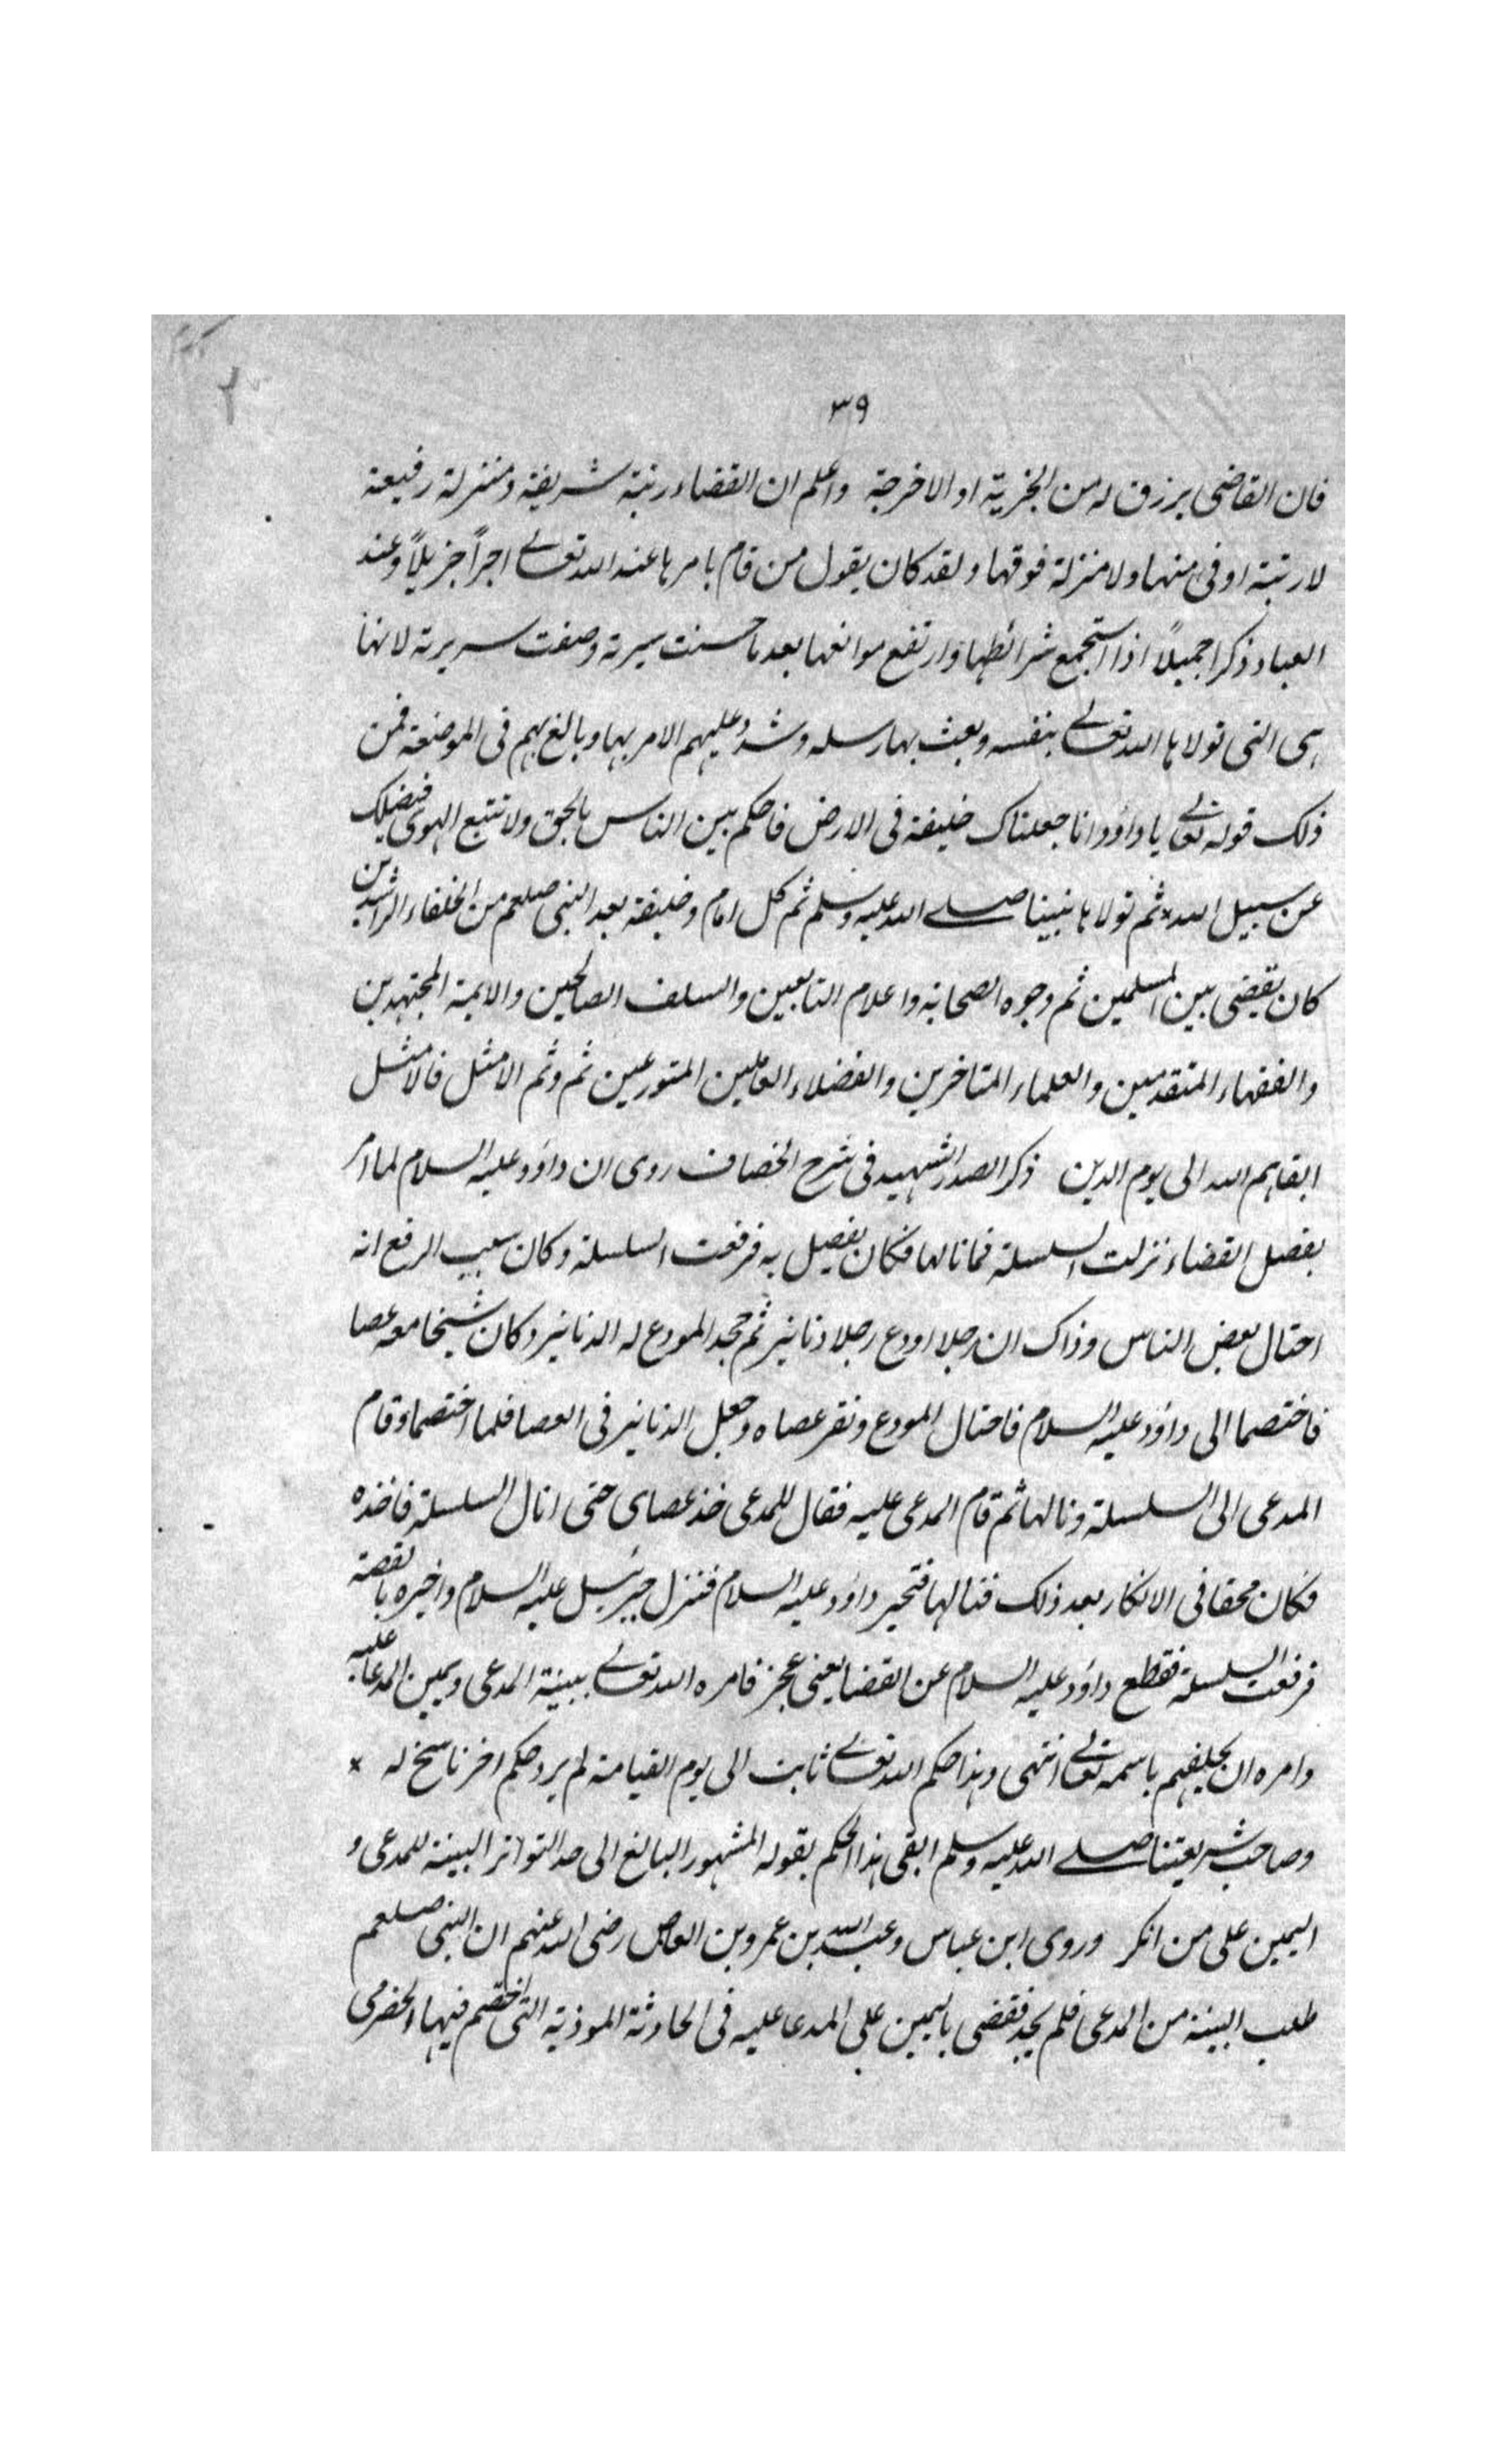 ٣٩
فان القاضى يرزق له من الجزية او الاخرجة واعلم ان القضاء رتبة شريفة ومنزلة رفيعة
لا رتبة اوفى منها ولا منزلة فوقها ولقد كان يقول من قام بامرها عند الله تعالى اجراً جزيلاً وعند
العباد ذكرا جميلاً اذا استجمع شرائطها وارتفع موانعها بعد ما حسنت سيرته وصفت سريرته لانها
هى التى تولاها الله تعالى بنفسه وبعث بها رسله وشدد عليهم الامر بها وبالغ بهم فى الموضعة فمن
ذلك قوله تعالى يا داؤد انا جعلناك خليفة فى الارض فاحكم بين الناس بالحق ولا تتبع الهوى فيضلك
عن سبيل الله * ثم تولاها نبينا صلى الله عليه وسلم ثم كل امام وخليفة بعد النبى صلعم من الخلفاء الراشدين
كان يقضى بين المسلمين ثم وجوه الصحابة واعلام التابعين والسلف الصالحين والايمة المجتهدين
والفقهاء المتقدمين والعلماء المتاخرين والفضلاء العاملين المتورعين ثم وثم الامثل فالامثل
ابقاهم الله الى يوم الدين ذكر الصدر الشهيد فى شرح الخصاف روى ان داؤد عليه السلام لما امر
بفصل القضاء نزلت السلسلة فما نالها فكان يفصل به فرفعت السلسلة وكان سبب الرفع انه
احتال بعض الناس وذاك ان رجلا اودع رجلا دنانير ثم جحد المودع له الدنانير وكان شيخا معه عصا
فاختصما الى داؤد عليه السلام فاحتال المودع ونقر عصاه وجعل الدنانير فى العصا فلما اختصما وقام
المدعى الى السلسلة ونالها ثم قام المدعى عليه فقال للمدعى خذ عصاى حتى انال السلسلة فاخذه
فكان محقا فى الانكار بعد ذلك فنالها فتحير داؤد عليه السلام فنزل جبرئيل عليه السلام واخبره بالقصة
فرفعت السلسلة فقطع داؤد عليه السلام عن القضا يعنى عجز فامره الله تعالى ببينة المدعى ويمين المدعا عليه
وامره ان يحلفهم باسمه تعالى انتهى وهذا حكم الله تعالى ثابت الى يوم القيامة لم يرد حكم اخر ناسخ له *
وصاحب شريعتنا صلى الله عليه وسلم ابقى هذا الحكم بقوله المشهور البالغ الى حد التواتر البينة للمدعى و
اليمين على من انكر وروى ابن عباس وعبد الله بن عمرو بن العاص رضى الله عنهم ان النبى صلعم
طلب البينة من المدعى فلم يجد فقضى باليمين على المدعا عليه فى الحادثة الموذية التى اختصم فيها الحضرمى